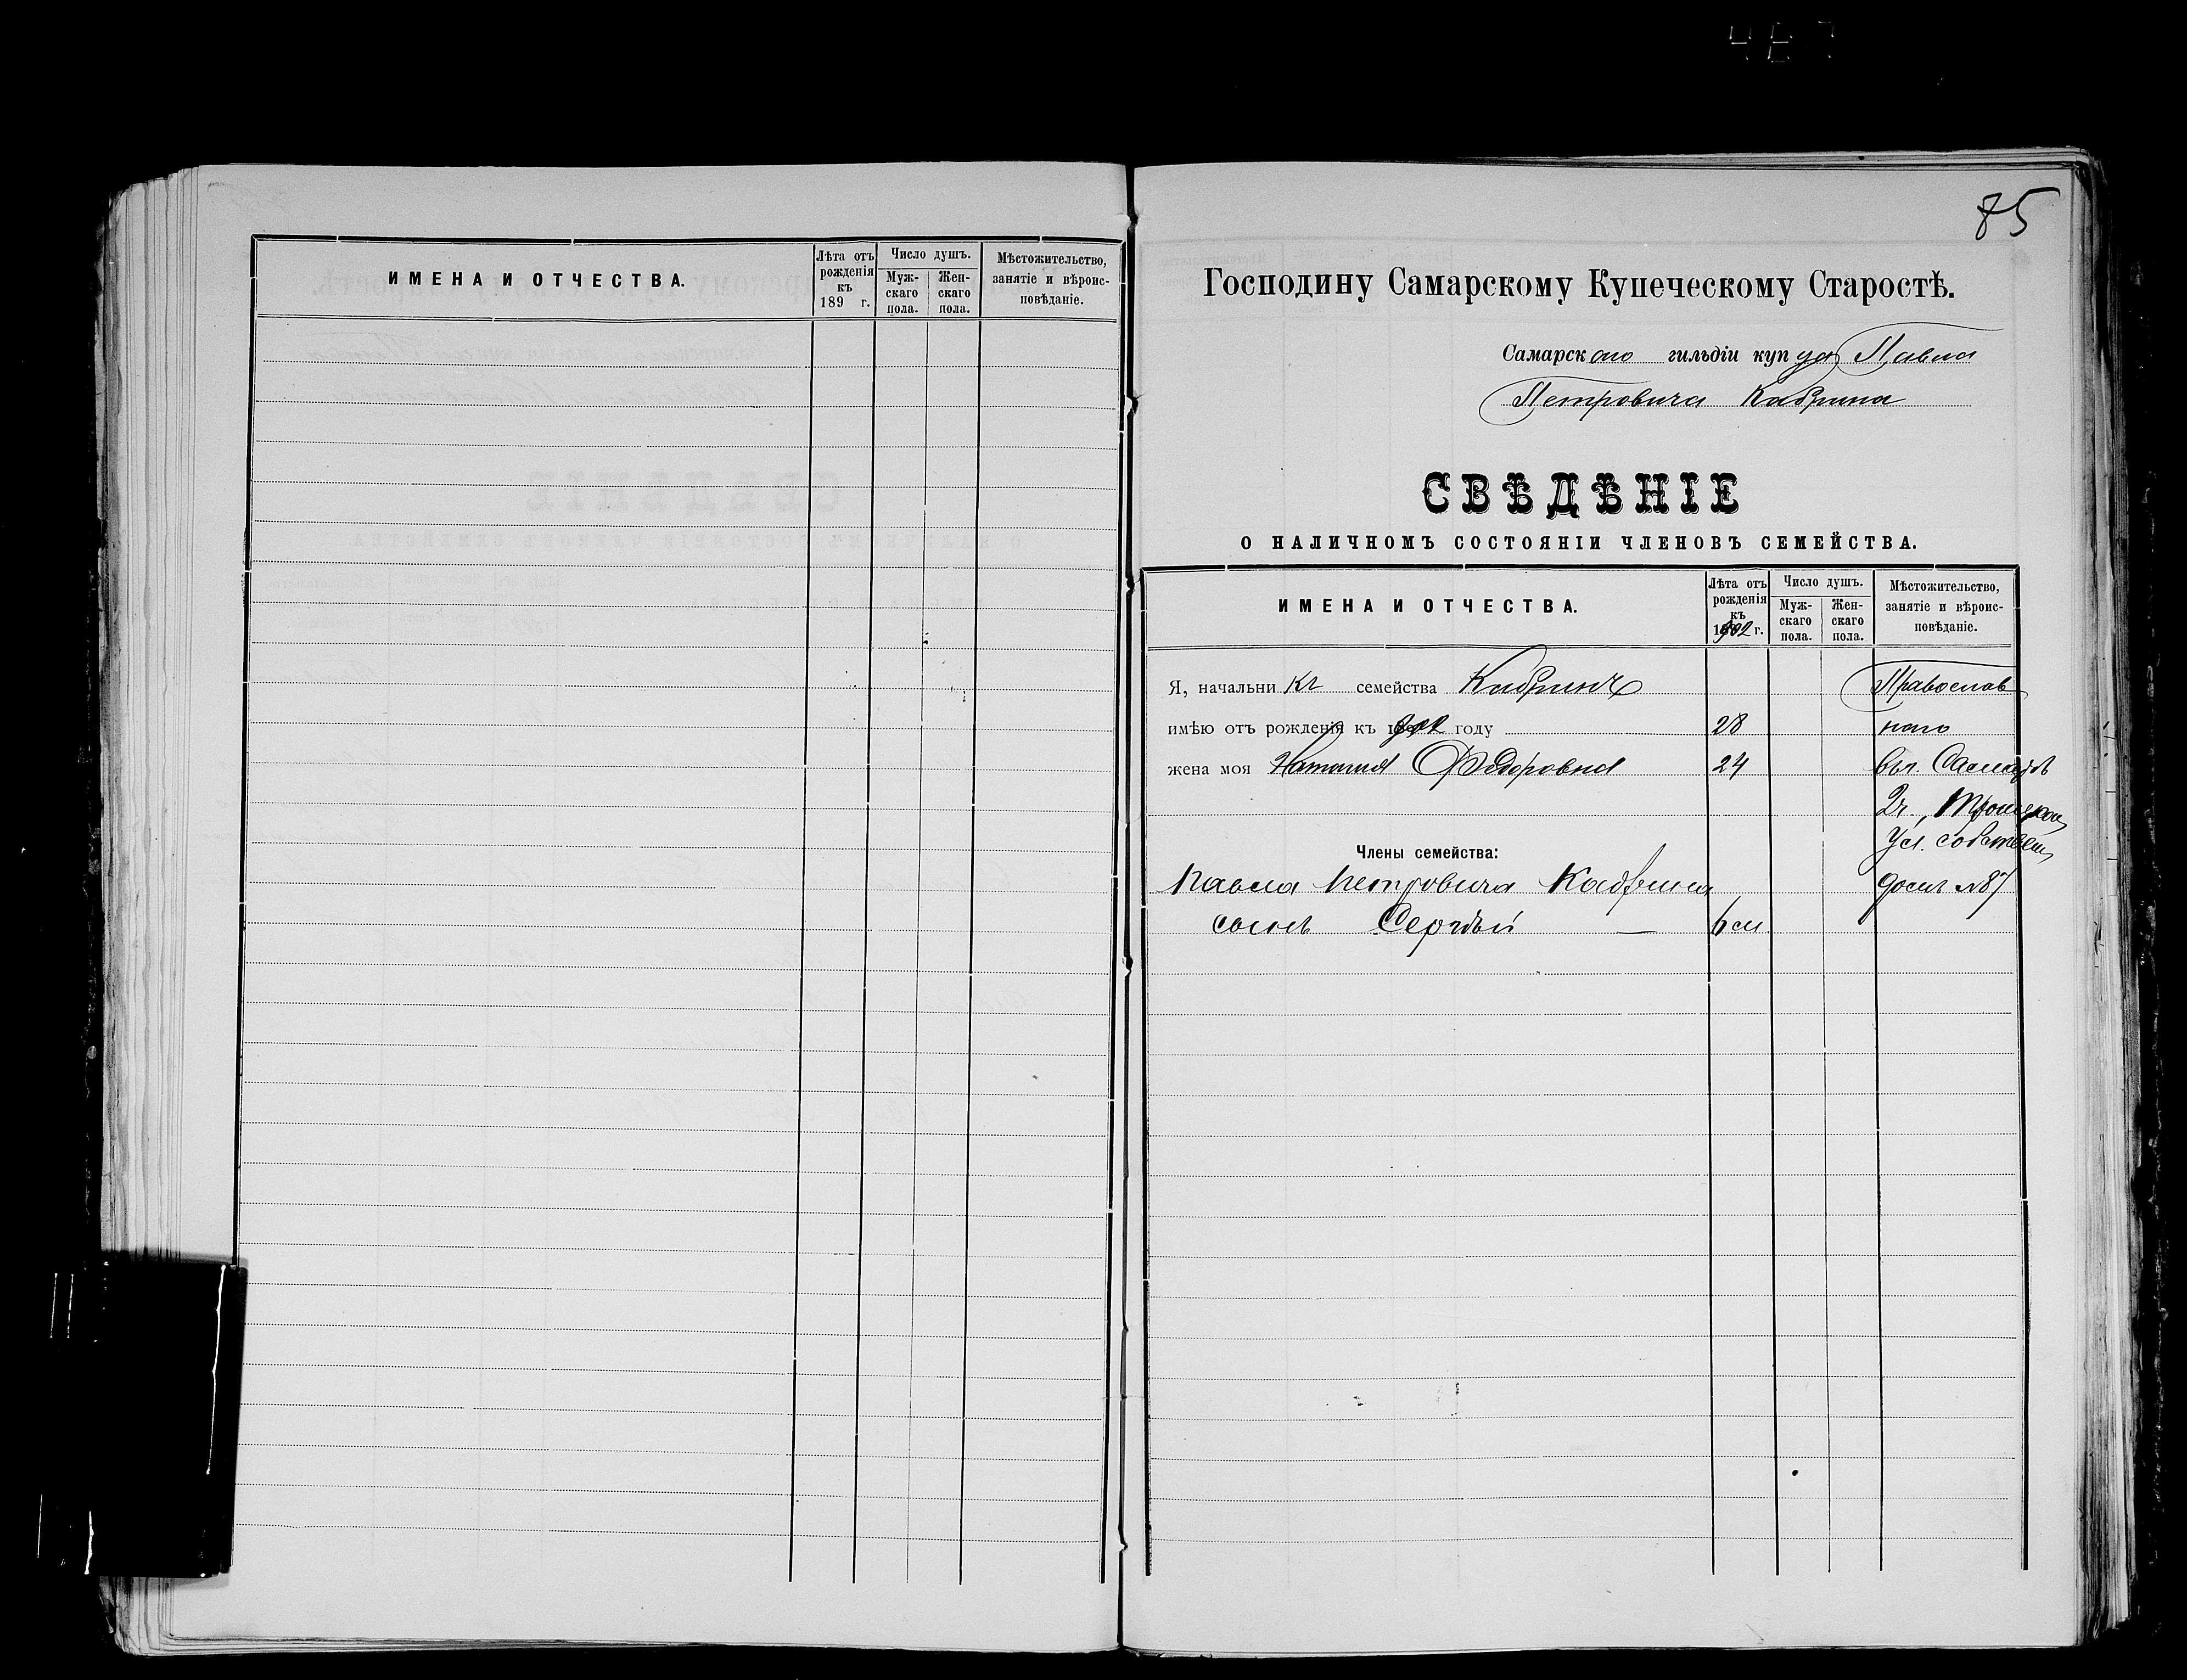 ИМЕНА И ОТЧЕСТВА.
Лѣта отъ рожденія къ 189 г.
Число душъ.
Мужскаго пола.
Женскаго пола.
Мѣстожительство, занятіе и вѣроисповѣданіе.
85
Господину Самарскому Купеческому Старостѣ.
Самарскаго гильдіи купца Павла
Петровича Кадрина
СВѢДѢНІЕ
О НАЛИЧНОМЪ СОСТОЯНІИ ЧЛЕНОВЪ СЕМЕЙСТВА.
ИМЕНА И ОТЧЕСТВА.
Лѣта отъ рожденія къ 1902 г.
Число душъ.
Мужскаго пола.
Женскаго пола.
Мѣстожительство, занятіе и вѣроисповѣданіе.
Я, начальникъ семейства Кадринъ Православ
имѣю отъ рожденія къ 1902 году 28 наго
жена моя Наталия Федоровна 24 въ г. Самарѣ
2 ч., Троицкой
Члены семейства: ул. собствен
Павла Петровича Кадрина домъ №87
сынъ Сергѣй — 6 м